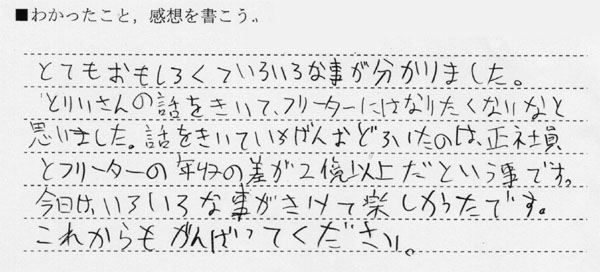 ■わかったこと，感想を書こう。
とてもおもしろくていろいろな事が分かりました。
とりいさんの話をきいて、フリーターにはなりたくないなと
思いました。話をきいていちばんおどろいたのは、正社員
とフリーターの年収の差が2億以上だという事です。
今日は、いろいろな事がきけて楽しかったです。
これからもがんばってください。